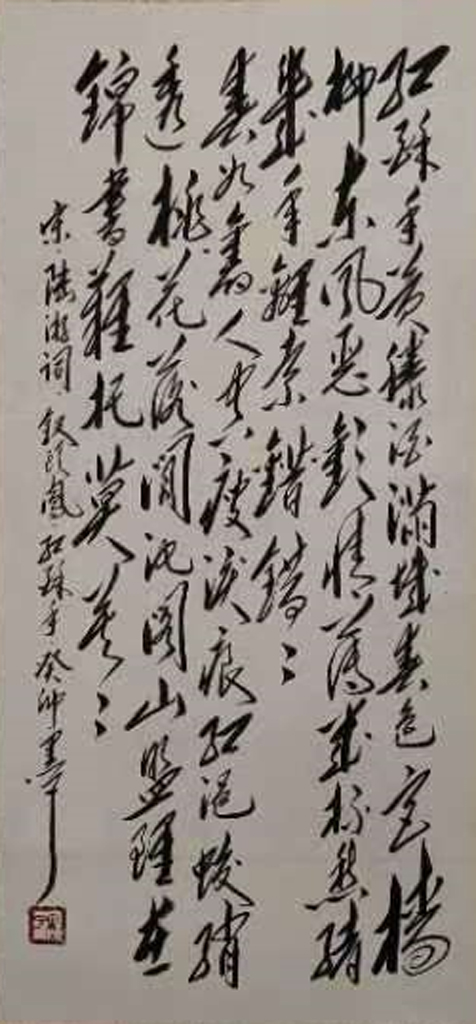 红酥手黄縢酒满城春色宫墙
柳东风恶欢情薄愁绪
几年離索錯錯〻
春如舊人空瘦淚痕红浥鲛绡
透桃花落閒池阁山盟雖在
錦書難托莫莫〻
宋陆游词钗头凤红酥手癸卯